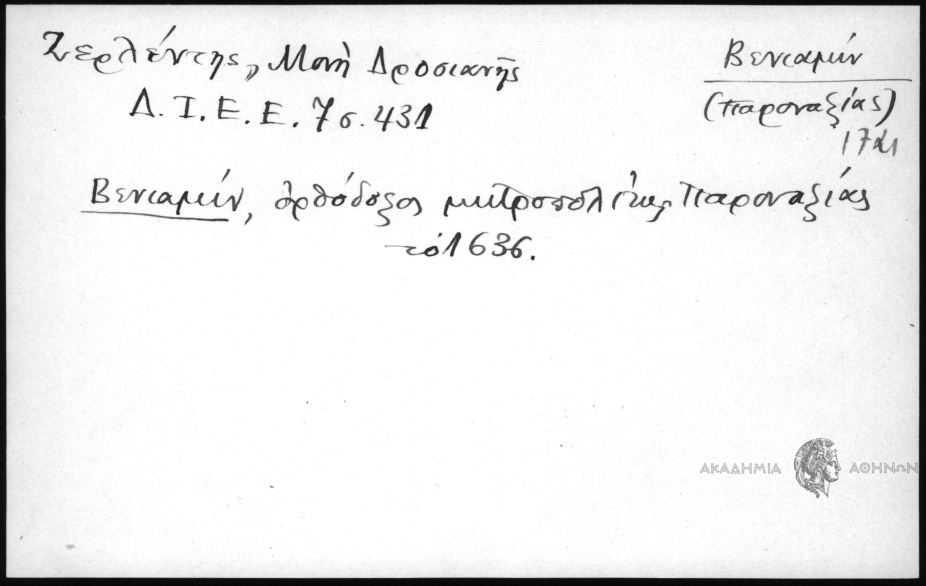 Ζερλέντης, Μονὴ Δροσιανῆς
Δ. Ι. Ε. Ε. 7 σ. 431
Βενιαμίν
(Παροναξίας)
Βενιαμίν, ὀρθόδοξος μητροπολίτης Παροναξίας
τό 1636.
ΑΚΑΔΗΜΙΑ ΑΘΗΝΩΝ